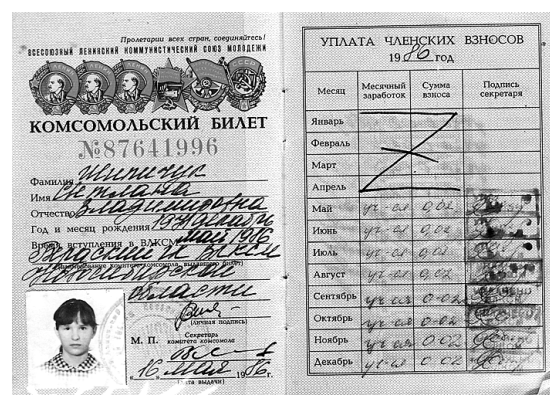 Пролетарии всех стран, соединяйтесь!
ВСЕСОЮЗНЫЙ ЛЕНИНСКИЙ КОММУНИСТИЧЕСКИЙ СОЮЗ МОЛОДЕЖИ
КОМСОМОЛЬСКИЙ БИЛЕТ
№87641996
Фамилия
Имя Светлана
Отчество Владимировна
Год и месяц рождения 1971 декабрь
Время вступления в ВЛКСМ май 1986
области
(личная подпись)
М. П. Секретарь
комитета комсомола
"16" мая 1986 г.
(дата выдачи)
УПЛАТА ЧЛЕНСКИХ ВЗНОСОВ
1986 год
Месяц Месячный заработок Сумма взноса Подпись секретаря
Январь
Февраль
Март
Апрель
Май уч-ся 0,02
Июнь уч-ся 0,02
Июль уч-ся 0,02
Август уч-ся 0,02
Сентябрь уч-ся 0-02
Октябрь уч-ся 0-02
Ноябрь уч-ся 0-02
Декабрь уч-ся 0-02